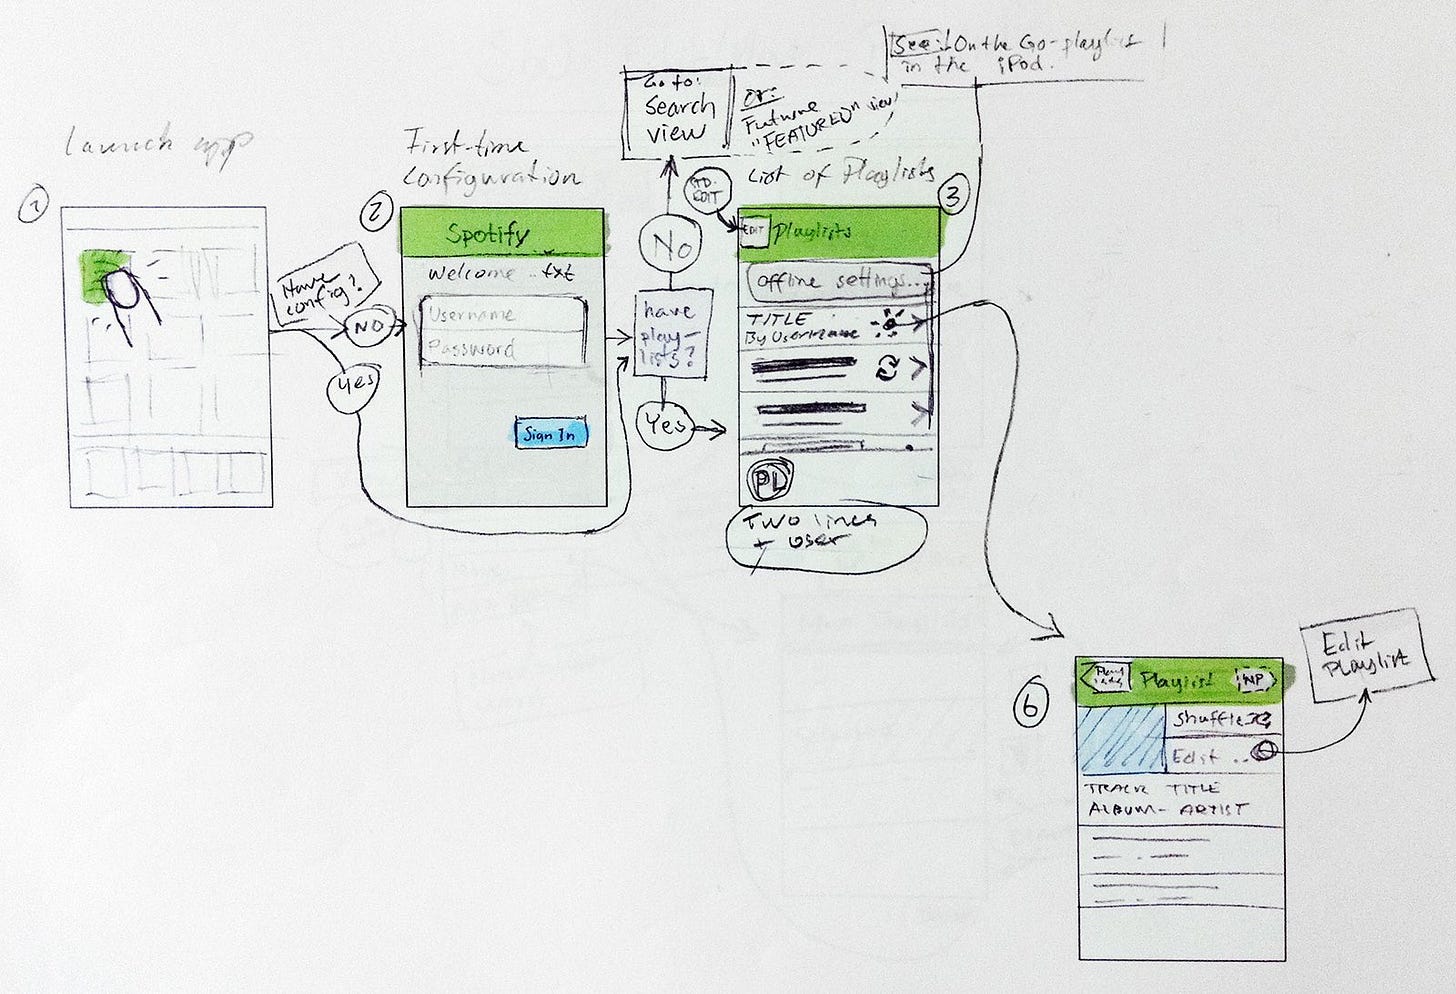 See: On the Go-playlist
in the iPod.
Go to:
Search
view
or:
Future
"FEATURED" view
Launch app
First-time
configuration
List of Playlists
1
2
3
STD.
EDIT
Have
config?
NO
Yes
Spotify
Welcome .. txt
Username
Password
Sign In
No
have
play-
lists?
Yes
EDIT
Playlists
Offline settings...
TITLE
By Username
PL
Two lines
+ user
6
Playlist
NP
Shuffle
Edit ..
TRACK TITLE
ALBUM - ARTIST
Edit
Playlist